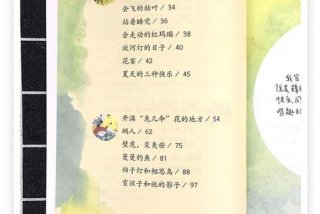 会飞的枯叶 / 34
站着睡觉 / 36
会走动的红玛瑙 / 38
放河灯的日子 / 40
花宴 / 42
夏天的三种快乐 / 45
开满“兔儿伞”花的地方 / 54
蜗人 / 62
壁虎，变美些 / 75
曼曼的鱼 / 81
柿子灯和相思鸟 / 88
盲孩子和他的影子 / 97
我写